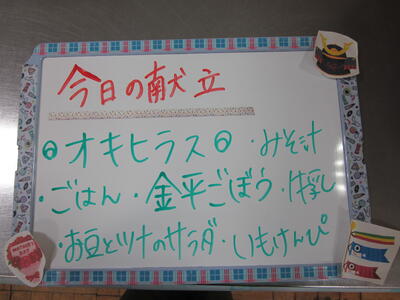 今日の献立
◎オキヒラス◎・みそ汁
・ごはん・金平ごぼう・牛乳
・お豆とツナのサラダ・いもけんぴ
MOTHER'S DAY